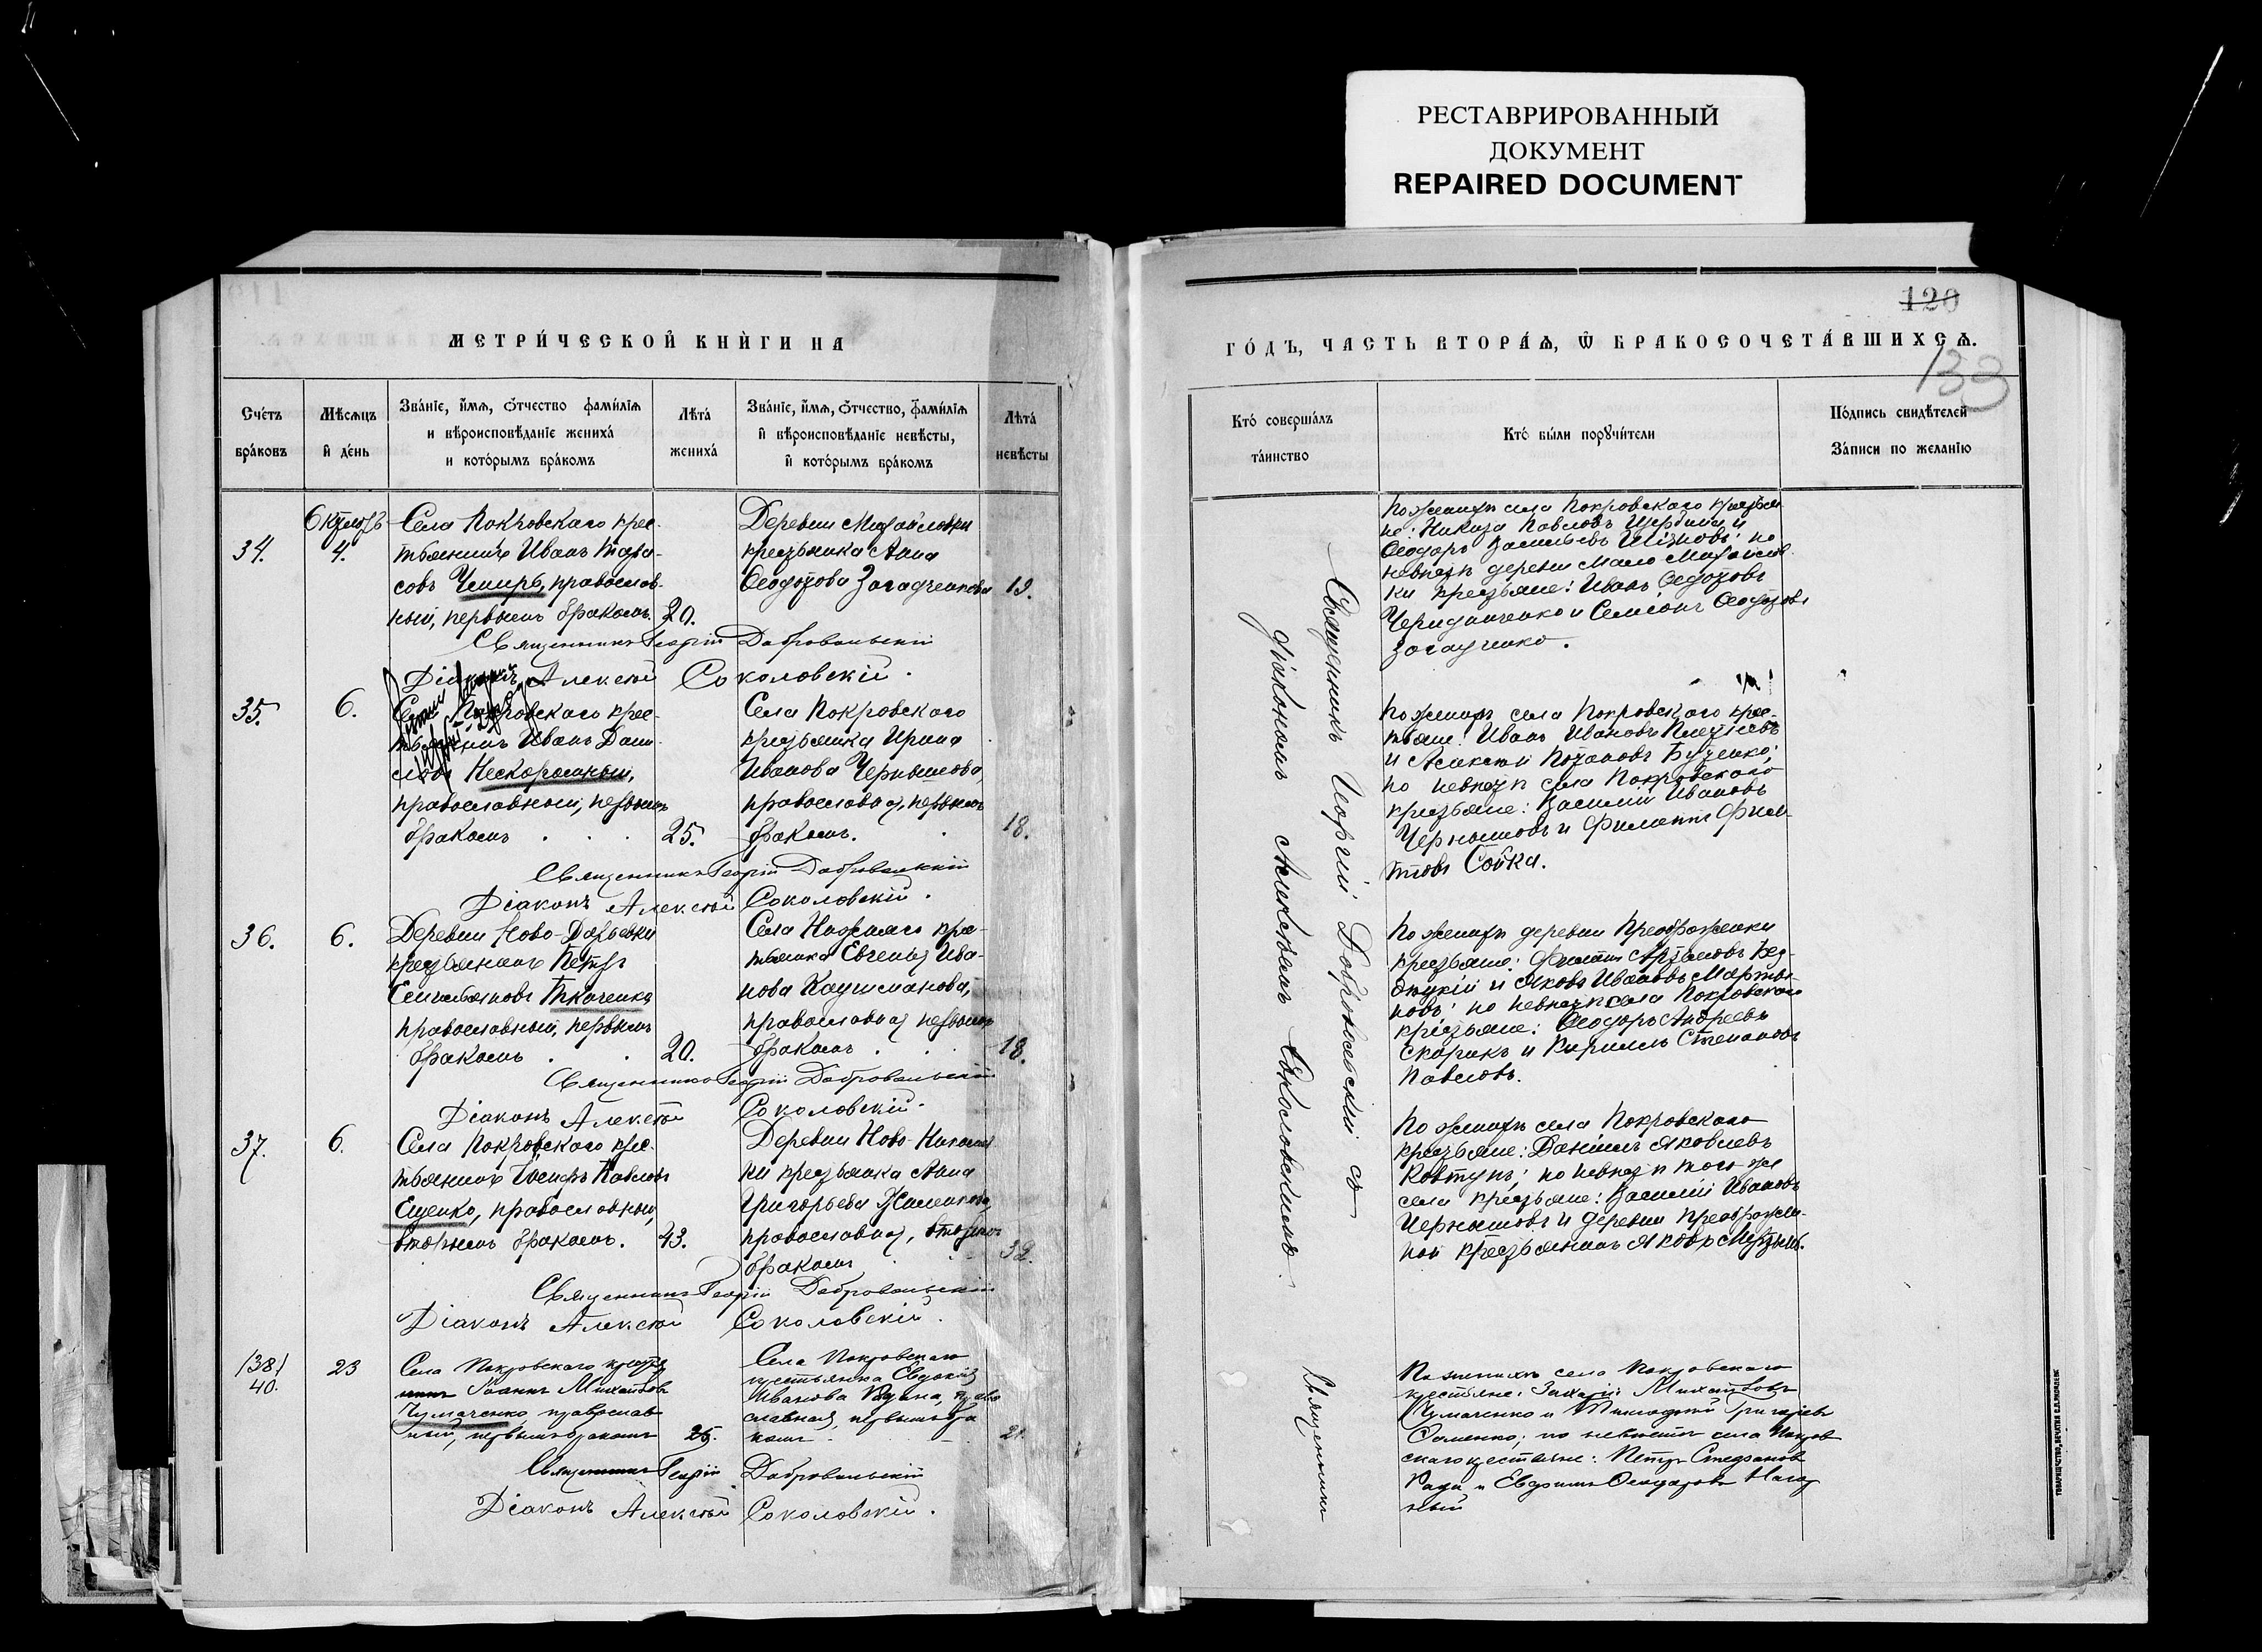 РЕСТАВРИРОВАННЫЙ
ДОКУМЕНТ
REPAIRED DOCUMENT
120
133
МЕТРИ́ЧЕСКОЙ КНИ́ГИ НА
Сче́тъ
бра́ковъ
Мѣ́сѧцъ
и҆ де́нь
Зва́нїе, и҆́мѧ, ѻ҆́тчество фами́лїѧ
и вѣроисповѣ́данїе жениха́
и кото́рымъ бра́комъ
Лѣта́
жениха́
Зва́нїе, и҆́мѧ, ѻ҆́тчество, фами́лїѧ
и҆ вѣроисповѣ́данїе невѣ́сты,
и҆ кото́рымъ бра́комъ
Лѣта́
невѣ́сты
34.
Октябрь
4.
Села Покровскаго крес-
тьянинъ Иванъ Тара-
совъ Чмиръ, православ-
ный, первымъ бракомъ. 20.
Деревни Михайловки
крестьянка Анна
Ѳеодотова Загадченкова 19.
Священникъ Георгій Добровольскій
Діаконъ Алексѣй Соколовскій.
35.
6.
Села Покровскаго крес-
тьянинъ Иванъ Дани-
ловъ Нескоромный,
православный, первымъ
бракомъ 25.
Села Покровскаго
крестьянка Ирина
Иванова Чернышова,
православная, первымъ
бракомъ. 18.
Священникъ Георгій Добровольскій
Діаконъ Алексѣй Соколовскій.
36.
6.
Деревни Ново-Дарьевки
крестьянинъ Петръ
Ткаченко
православный, первымъ
бракомъ 20.
Села Нижняго крес-
тьянка Евгенія Ива-
нова Каушманова,
православная первымъ
бракомъ 18.
Священникъ Георгій Добровольскій
Діаконъ Алексѣй Соколовскій.
37.
6.
Села Покровскаго крес-
тьянинъ Іосифъ Павловъ
Ещенко, православный,
вторымъ бракомъ. 43.
Деревни Ново-
ки крестьянка Анна
Григорьева
православная, вторымъ
бракомъ 32.
Священникъ Георгій Добровольскій
Діаконъ Алексѣй Соколовскій.
(38.)
40.
23
Села Покровскаго крестья
нинъ Іоаннъ Михайловъ
Чумаченко, православ
ный, первымъ бракомъ 25.
Села Покровскаго
крестьянка Евдокія
Иванова право
славная, первымъ бра
комъ 21.
Священникъ Георгій Добровольскій
Діаконъ Алексѣй Соколовскій.
ГО́ДЪ, ЧАСТЬ ВТОРА́Ѧ, Ѽ БРАКОСОЧЕТА́ВШИХСѦ.
Кто̀ соверша́лъ
та́инство
Кто̀ бы́ли порꙋчи́тели
По́дпись свидѣ́телей
За́писи по жела́нїю
Священникъ Георгій Добровольскій съ
діакономъ Алексѣемъ Соколовскимъ.
Священникъ
По женихѣ села Покровскаго крестья
не: Никита Павловъ Щербина и
Ѳеодоръ Васильевъ по
невѣстѣ деревни Мало Михайлов
ки крестьяне: Иванъ Ѳедотовъ
Чериданченко и Семіонъ Ѳеодотовъ
Загадченко.
По женихѣ села Покровскаго крес-
тьяне: Иванъ Ивановъ
и Алексѣй Потаповъ Буценко;
по невѣстѣ села Покровскаго
крестьяне: Василій Ивановъ
Чернышовъ и Филиппъ Фили-
повъ Сойка.
По женихѣ деревни Преображенки
крестьяне: Филиппъ Артемовъ Без-
и Яковъ Ивановъ Марты-
новъ; по невѣстѣ села Покровскаго
крестьяне: Ѳеодоръ Андреевъ
Скорикъ и Кириллъ Степановъ
Павловъ.
По женихѣ села Покровскаго
крестьяне: Даніилъ Яковлевъ
Ковтунъ; по невѣстѣ того-же
села крестьяне: Василій Ивановъ
Чернышовъ и деревни Преображен-
ной крестьянинъ Яковъ
По женихѣ села Покровскаго
крестьяне: Захарій Михайловъ
Чумаченко и Тимоѳей Григорьевъ
по невѣстѣ села Покров
скаго крестьяне: Петръ Стефановъ
и Евфимъ Ѳеодоровъ Нагор
ный